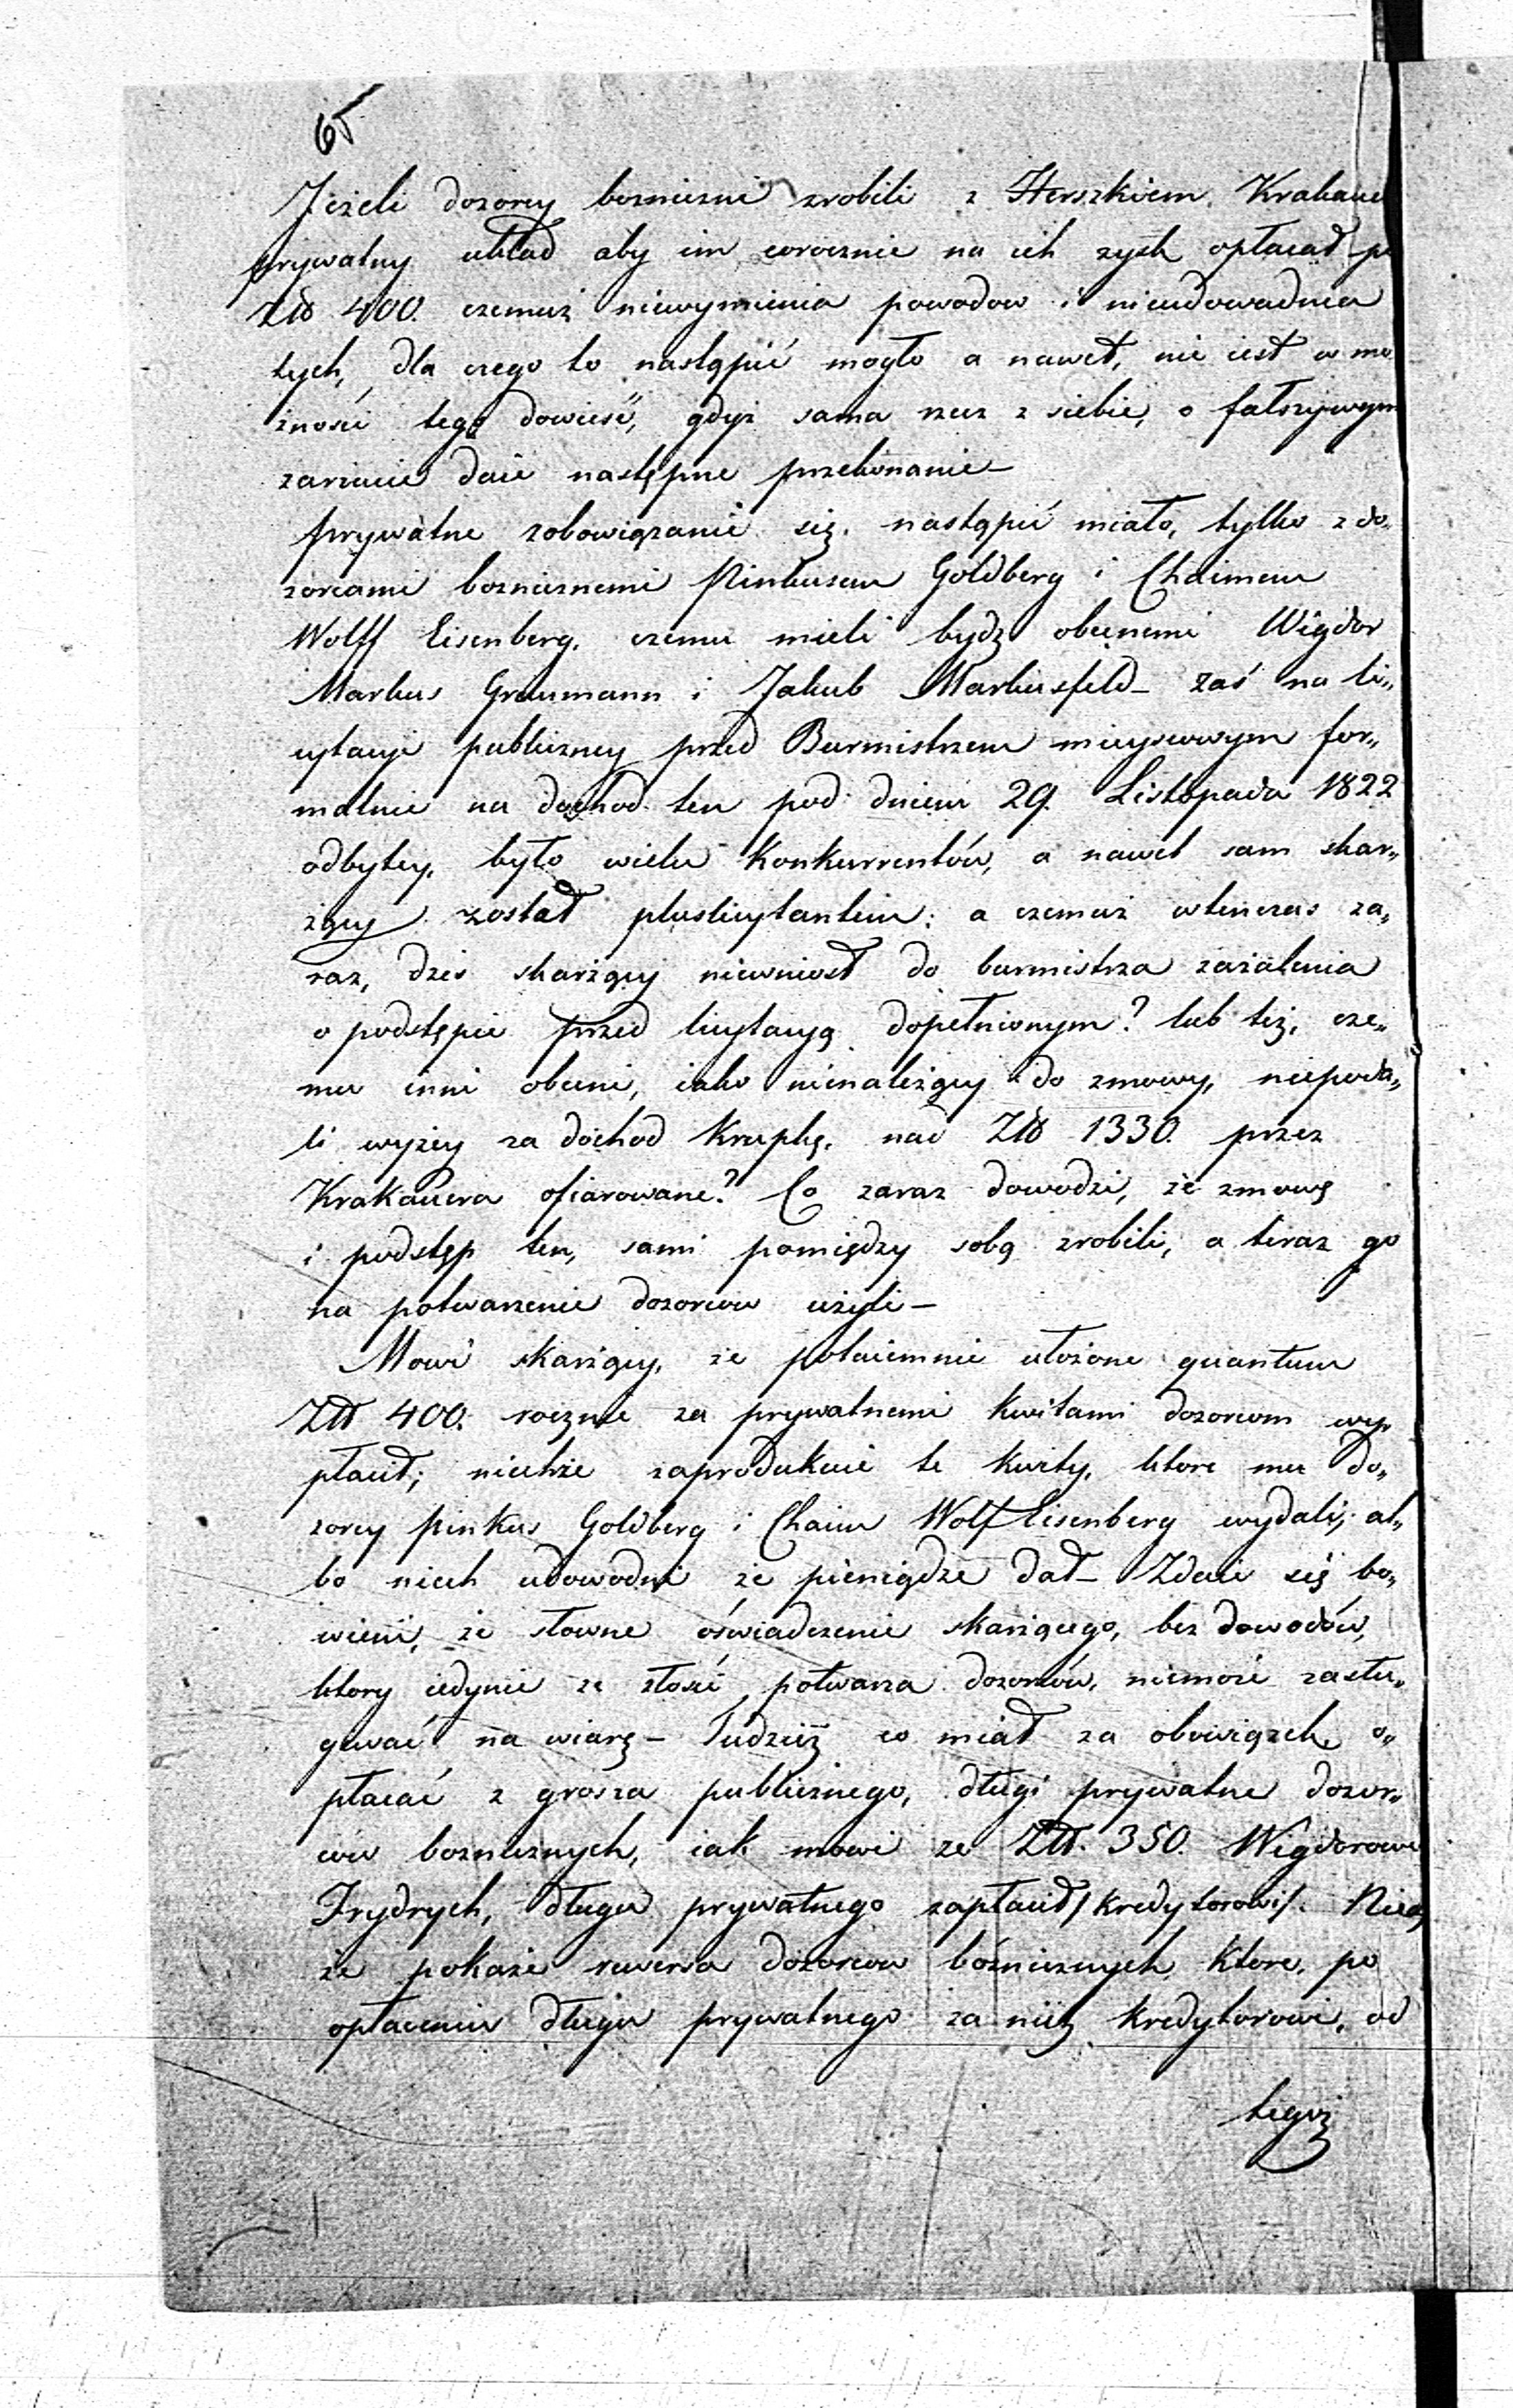 65
Jeżeli dozorcy bozniczni zrobili z Herszkiem Krakauer
prywatny układ aby im corocznie na ich zysk opłacał po
Złt 400. czemuż niewymienia powodow i nieudowadnia
tych, dla czego to nastąpić mogło a nawet, nie iest w mo
żności tego dowieść, gdyż sama rzecz z siebie, o fałszywym
zarzucie daie następne przekonanie –
prywatne zobowiązanie się nastąpić miało, tylko z do„
zorcami boznicznemi Pinkusem Goldberg i Chaimem
Wolff Eisenberg, czemu mieli bydź obecnemi Wigdor
Markus Graumann i Jakub Markusfeld – zaś na li„
cytacyi publiczney przed Burmistrzem mieyscowym for„
malnie na dochod ten pod dniem 29. Listopada 1822
odbytey, było wielu Konkurrentów, a nawet sam skar„
żący został pluslicytantem: a czemuż wtenczas za„
raz, dziś skarżący niewniosł do burmistrza zażalenia
o podstępie przed licytacyą dopełnionym? lub też, cze„
mu inni obecni, iako nienależący do zmowy, niepoda„
li wyżey za dochod Krupkę, nad Złt 1330. przez
Krakauera ofiarowane? Co zaraz dowodzi, że zmowę
i podstęp ten, sami pomiędzy sobą zrobili, a teraz go
na potwarzenie dozorcow użyli –
Mowi skarżący, że potaiemnie ułożone quantum
Złt 400. rocznie za prywatnemi kwitami dozorcom wy„
płacił; niechże zaprodukuie te kwity, ktore mu do„
zorcy Pinkus Goldberg i Chaim Wolf Eisenberg wydali; al„
bo niech udowodni że pieniądze dał – Zdaie się bo„
wiem, że słowne oświadczenie skarżącego, bez dowodów,
ktory iedynie ze złości potwarza dozorców, niemoże zasłu„
giwać na wiarę – Tudzież co miał za obowiązek o„
płacać z grosza publicznego, długi prywatne dozor„
cow boznicznych, iak mowi że Złt. 350. Wigdorowi
Frydrych, długu prywatnego zapłacił /kredytorowi/. Niech
że pokaże rewersa dozorcow bóżnicznych, ktore, po
opłaceniu długu prywatnego za nich kredytorowi, od
tegoż